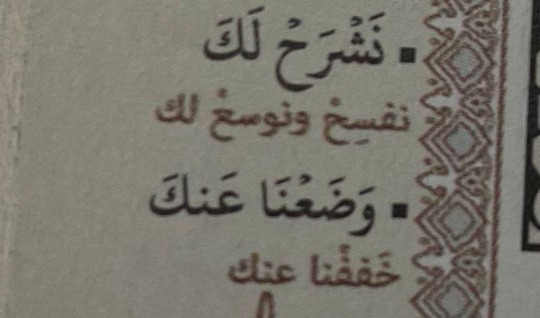 ▪ نَشْرَحْ لَكَ
نفسِحْ ونوسعْ لك
▪ وَضَعْنَا عَنكَ
خَففْنا عنك